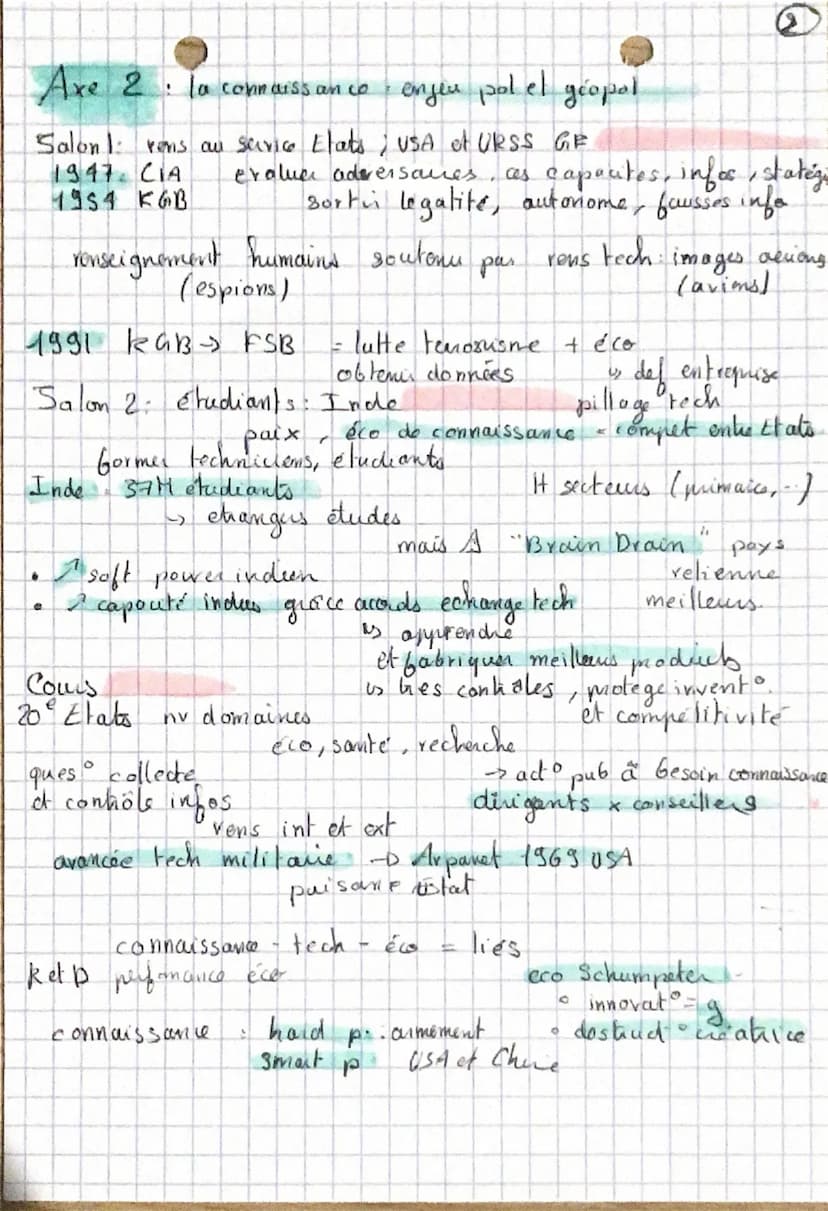 2
Axe 2 : la connaissance : enjeu pol et géopol
Salon 1: rens au service Etats ; USA et URSS GF
1947. CIA evaluer adversaires, ces capacites, infos, stratégi
1954 KGB sortir légalité, autonome, fausses info
renseignement humains soutenu par rens tech: images aeriens
(espions) (avions)
1991 KGB → FSB = lutte terrorisme + éco
obtenir données ↳ def entreprise
Salon 2: étudiants: Inde pillage tech
paix, éco de connaissance = compet entre Etats
former techniciens, étudiants
Inde : 37M étudiants H secteurs (primaire,..)
↳ etranges études
mais "Brain Drain" pays
• ↗ soft power indien retienne
• ↗ capacité indus grâce acords echange tech meilleurs.
↳ apprendre
et fabriquer meilleurs produits
Cours ↳ tres contrôles, protège invent°
20e Etats nv domaines et compétitivité
éco, santé, recherche
ques° collecte → act° pub à besoin connaissance
et contrôle infos dirigants x conseillers
rens int et ext
avancée tech militaire → Arpanet 1969 USA
puisance état
connaissance - tech - éco = liés
R et D perfomance éco eco Schumpeter -
° innovat° = g
connaissance : hard p : armement ° destruct° créatrice
smart p USA et Chine